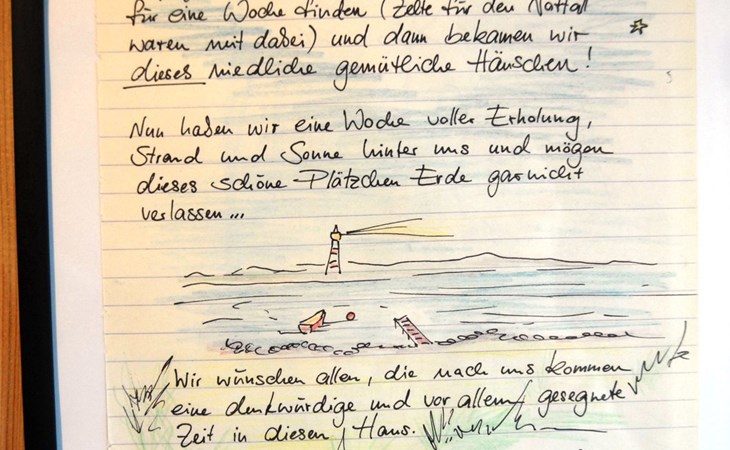 für eine Woche finden (Zelte für den Notfall
waren mit dabei) und dann bekamen wir
dieses niedliche gemütliche Häuschen!
Nun haben wir eine Woche voller Erholung,
Strand und Sonne hinter uns und mögen
dieses schöne Plätzchen Erde garnicht
verlassen...
Wir wünschen allen, die nach uns kommen
eine denkwürdige und vor allem gesegnete
Zeit in diesen Haus.